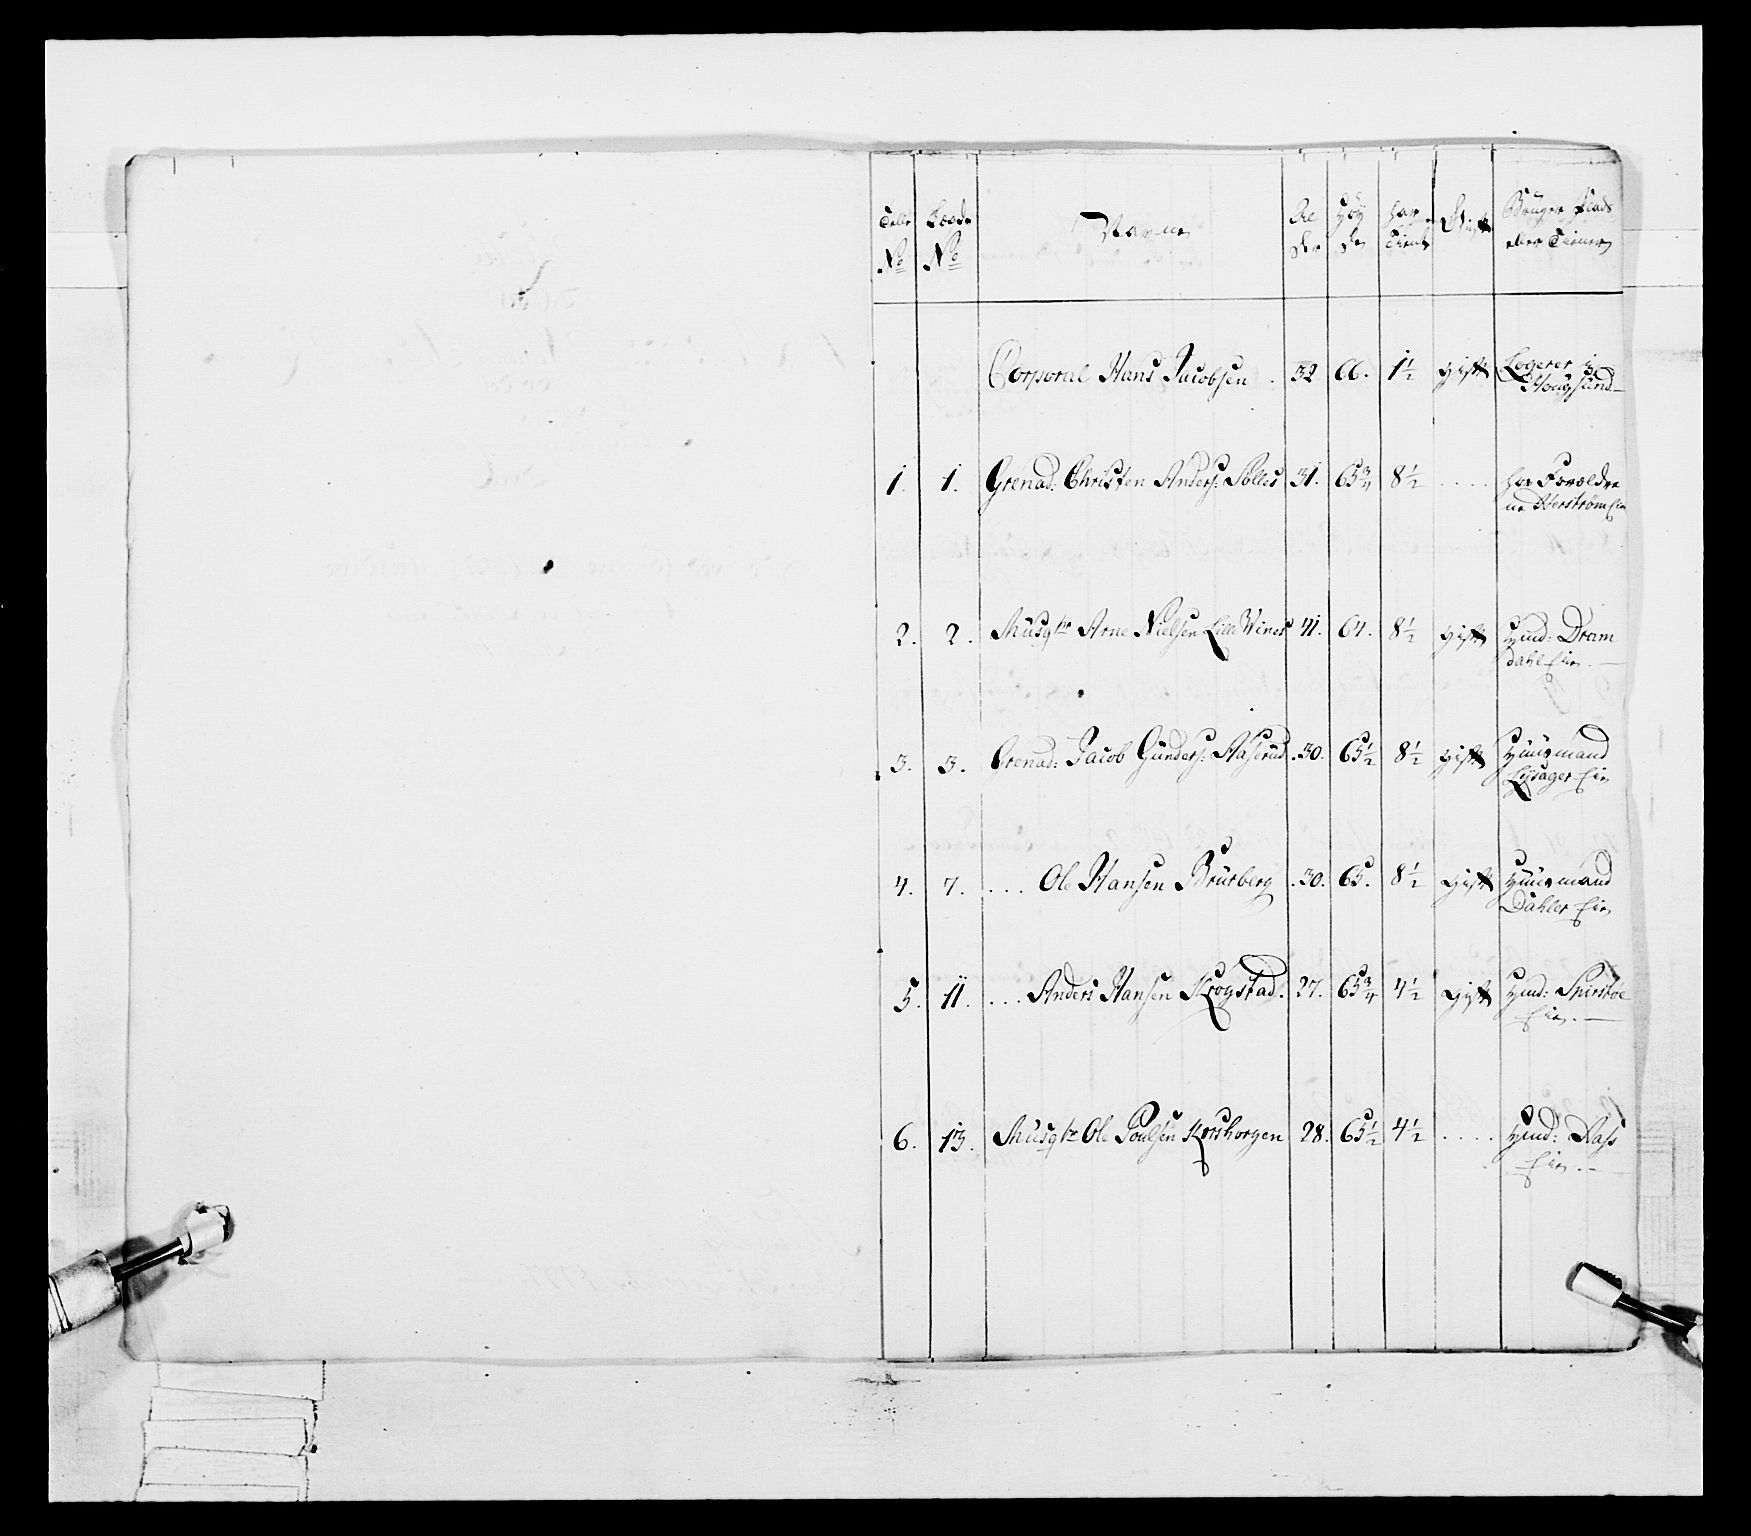 Telle No | Lægds No | Navne | Al der | Høy de | har Tient | Gift | Bruger Plads eller Tiener
Corporal Hans Jacobsen . 32 | 66. | 1½ | gift | Logerer i Hougsund
1. | 1. | Grenad: Christen Anders: Solles | 31. | 65¾ | 8½ | .... | hos Forældre ne Herstrøm Eie
2. | 2. | Musqtr Arne Nielsen Lille Wines | 41. | 64. | 8½ | gift | Hmd: Dram dahl Eie.
3. | 3. | Grenad: Jacob Gunders: Aaserud | 30. | 65½ | 8½ | gift | Huusmand Eie
4. | 7. | .... Ole Hansen Bruberg | 30. | 65. | 8½ | gift | Huusmand Dahler Eie
5. | 11. | ... Anders Hansen Krogstad. | 27. | 65¾ | 4½ | gift | Hmd: Eie.
6. | 13. | Musqtr Ole Poulsen Korshorgen | 28. | 65½ | 4½ | .... | Hmd: Aass Eie.